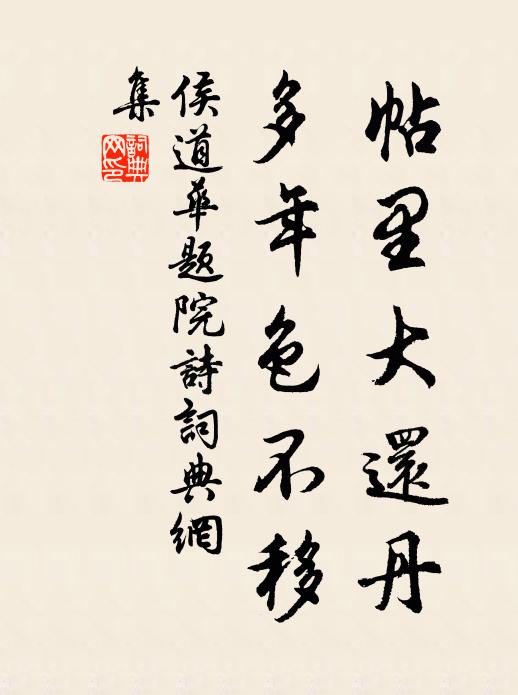 帖里大還丹
多年色不移
侯道華題院詩詞典網
集
詞典网印